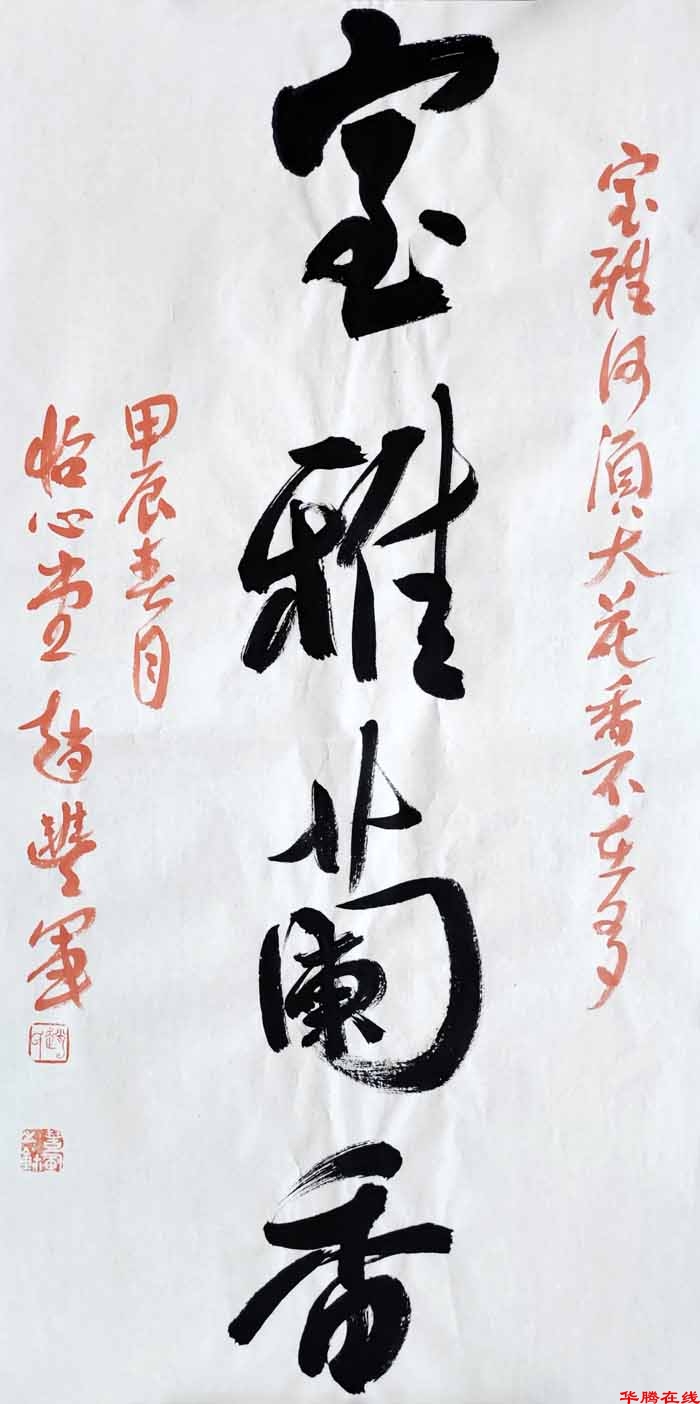 室雅何须大花香不在多
室雅蘭香
甲辰春月
怡心堂趙豐军
华腾在线